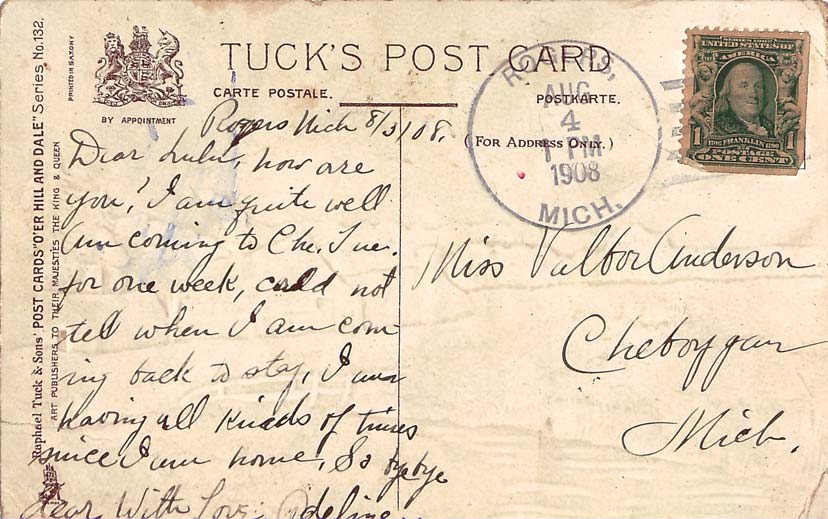 Raphael Tuck & Sons' POST CARDS "O'ER HILL AND DALE" Series No. 132.
ART PUBLISHERS TO THEIR MAJESTIES THE KING & QUEEN
PRINTED IN SAXONY
BY APPOINTMENT
TUCK'S POST CARD
CARTE POSTALE.
POSTKARTE.
(FOR ADDRESS ONLY.)
ROGERS,
AUG
4
1 PM
1908
MICH.
UNITED STATES OF
1 FRANKLIN 1
POSTAGE
ONE CENT
Rogers Mich 8/3/08.
Dear Lulu, how are
you? I am quite well
am coming to Che. Tue.
for one week, could not
tell when I am com
ing back to stay, I am
having all kinds of times
since I am home, So bye bye
dear With Love: Adeline
Miss Anderson
Cheboygan
Mich.